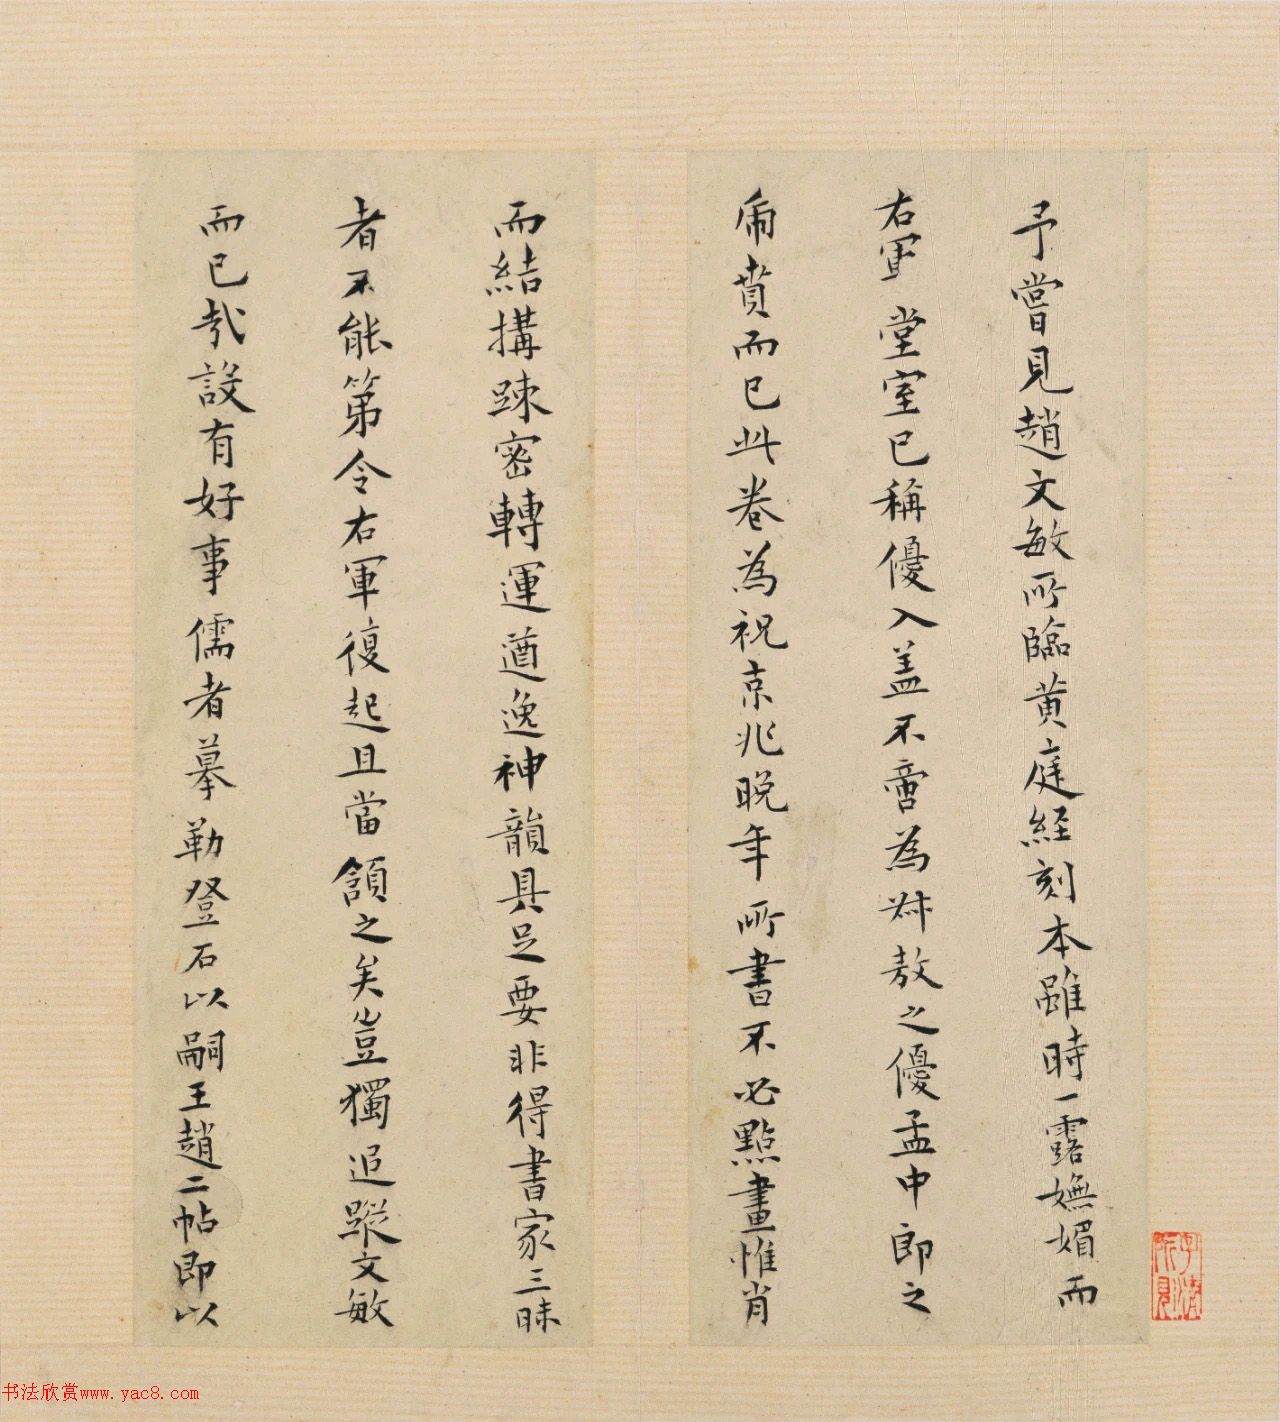 予嘗見趙文敏所臨黄庭經刻本雖時一露嫵媚而
右軍堂室已稱優入盖不啻為叔敖之優孟中郎之
賁而已此卷為祝京兆晚年所書不必點畫惟肖
而結搆踈密轉運遒逸神韻具足要非得書家三昧
者不能第令右軍復起且當頷之矣豈獨追蹤文敏
而已㢤設有好事儒者摹勒登石以嗣王趙二帖即以
書法欣赏www.yac8.com